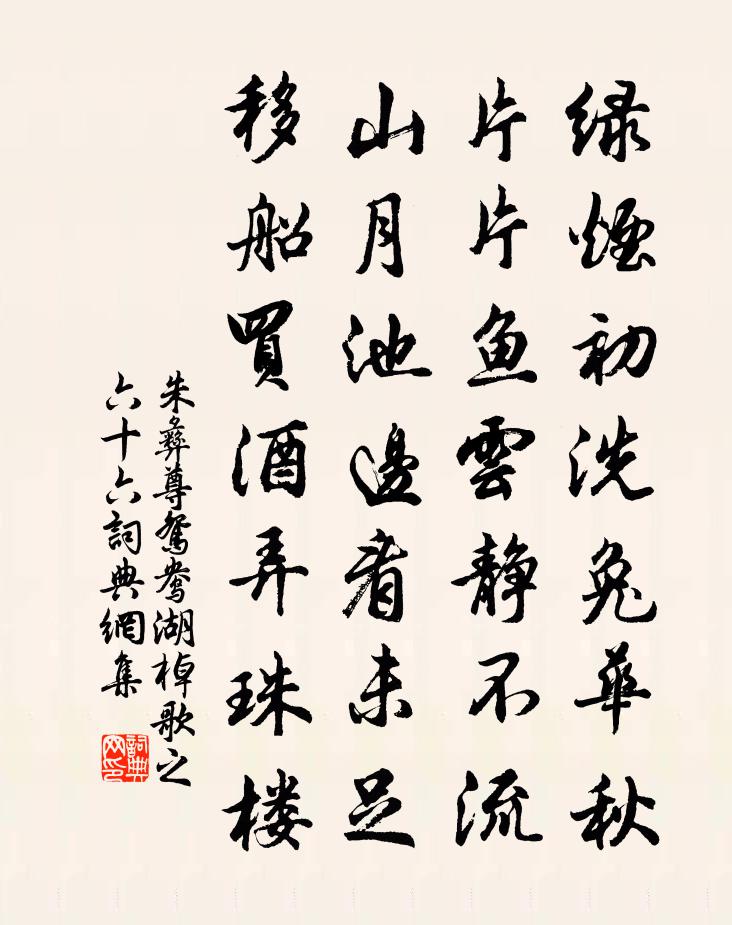 绿煙初洗兔華秋
片片鱼雲静不流
山月池邊看未足
移船買酒弄珠楼
朱彝尊鸳鸯湖棹歌之
六十六詞典網集
詞典网印